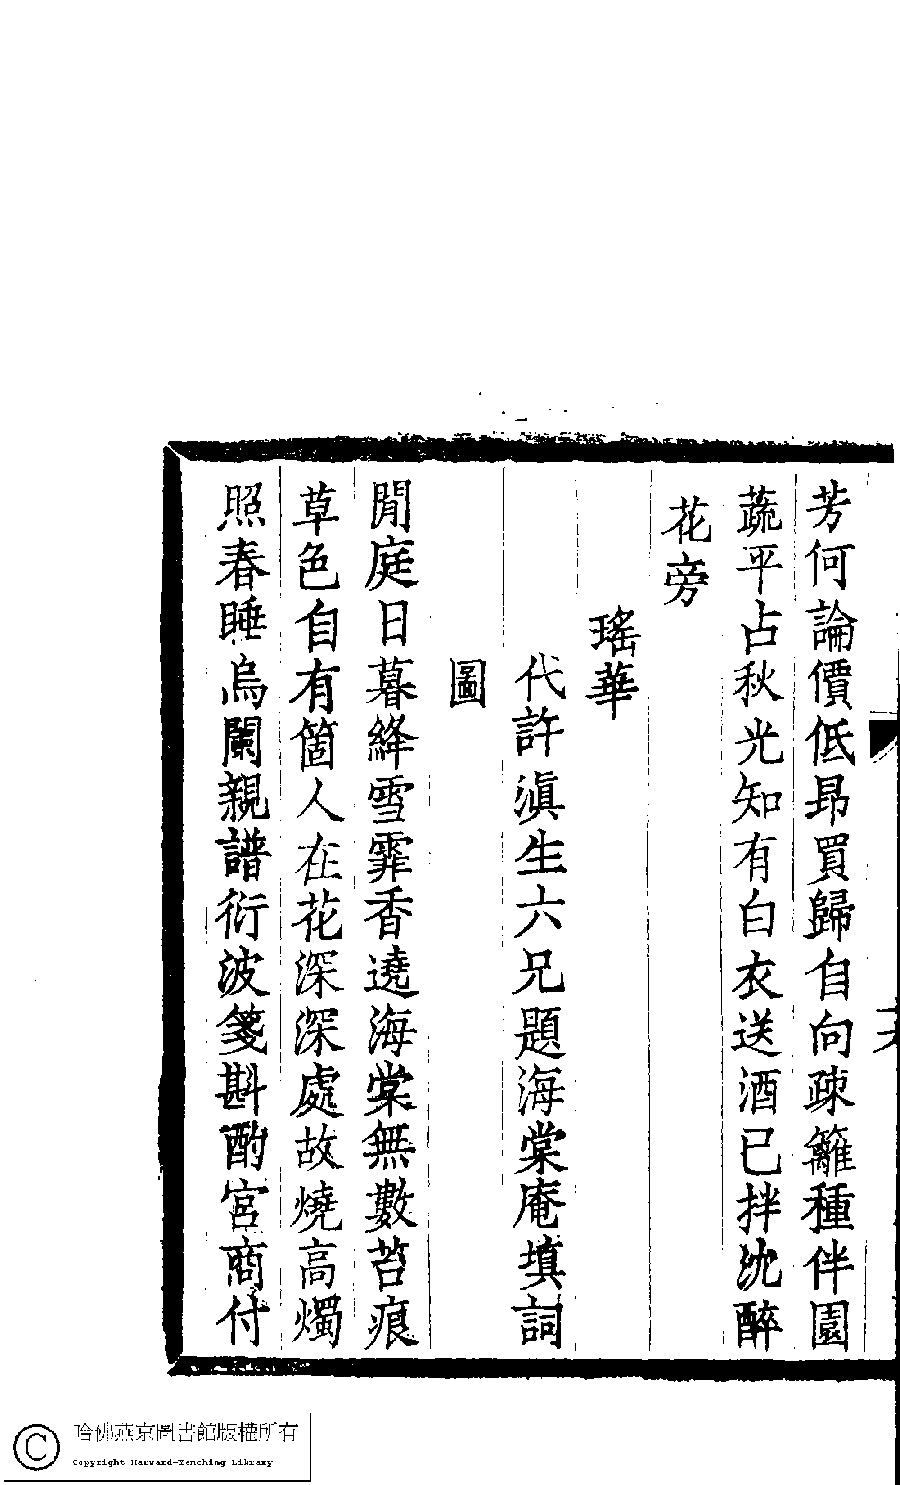 芳何論價低昂買歸自向疎籬種伴園
蔬平占秋光知有白衣送酒已拌沈醉
花旁
瑤華
代許滇生六兄題海棠庵填詞
圖
閒庭日暮絳雪霏香遶海棠無數苔痕
草色自有箇人在花深深處故燒高燭
照春睡烏闌親譜衍波箋斟酌宮商付
哈佛燕京圖書館版權所有
Copyright Harvard-Yenching Library